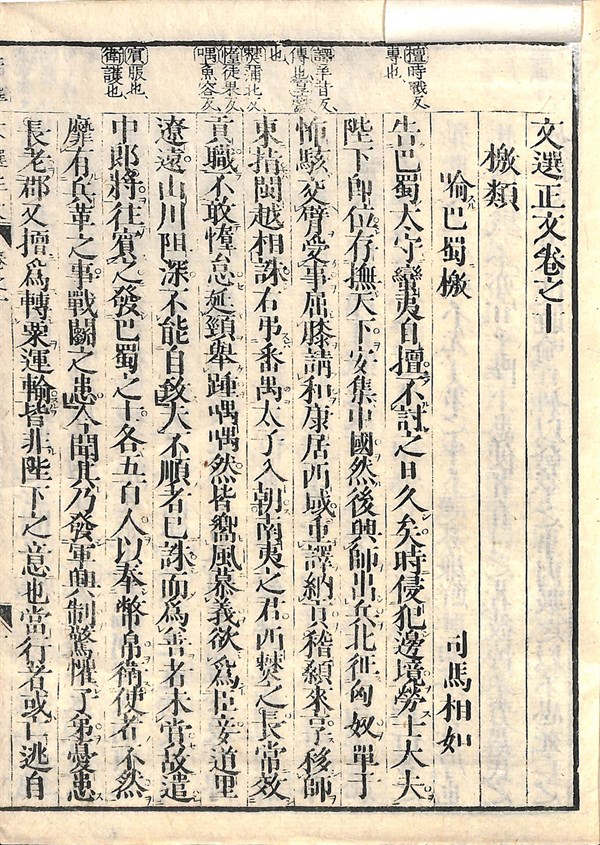 擅時戰反
專也、
譯羊昔反
傳也享獻
僰蒲北反
惰徒果反
喁魚容反
賓服也、
衛護也、
文選正文卷之十
檄類
喩巴蜀檄 司馬相如
告巴蜀太守蠻夷自擅不討之日久矣時侵犯邊境勞士大夫
陛下即位存撫天下安集中國然後興師出兵北征匈奴單于
怖駭交臂受事屈膝請和康居西域重譯納貢稽顙來享移師
東指閩越相誅右弔番禺太子入朝南夷之君西僰之長常效
貢職不敢惰怠延頸舉踵喁喁然皆嚮風慕義欲爲臣妾道里
遼遠山川阻深不能自致夫不順者已誅而爲善者未賞故遣
中郎將往賓之發巴蜀之士各五百人以奉幣帛衛使者不然
靡有兵革之事戰鬭之患今聞其乃發軍興制驚懼子弟憂患
長老郡又擅爲轉粟運輸皆非陛下之意也當行者或亡逃自